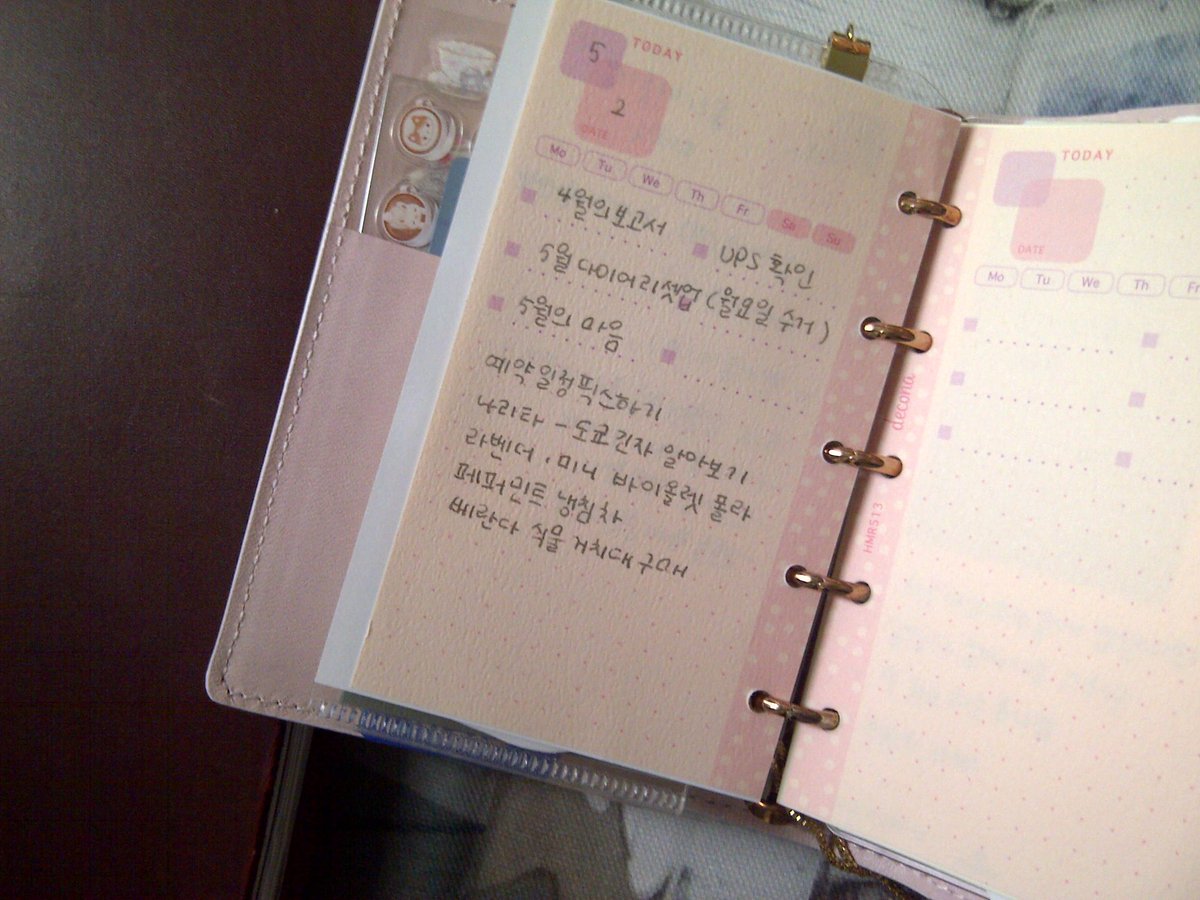 TODAY
5
2
DATE
Mo Tu We Th Fr Sa Su
4월의 보고서
UPS 확인
5월 다이어리셋업 (월요일 수거)
5월의 마음
예약일정픽스하기
나리타 - 도쿄긴자 알아보기
라벤더, 미니 바이올렛 폴라
페퍼민트 냉침차
베란다 식물 거치대 구매
decona
HMR513
TODAY
DATE
Mo Tu We Th Fr